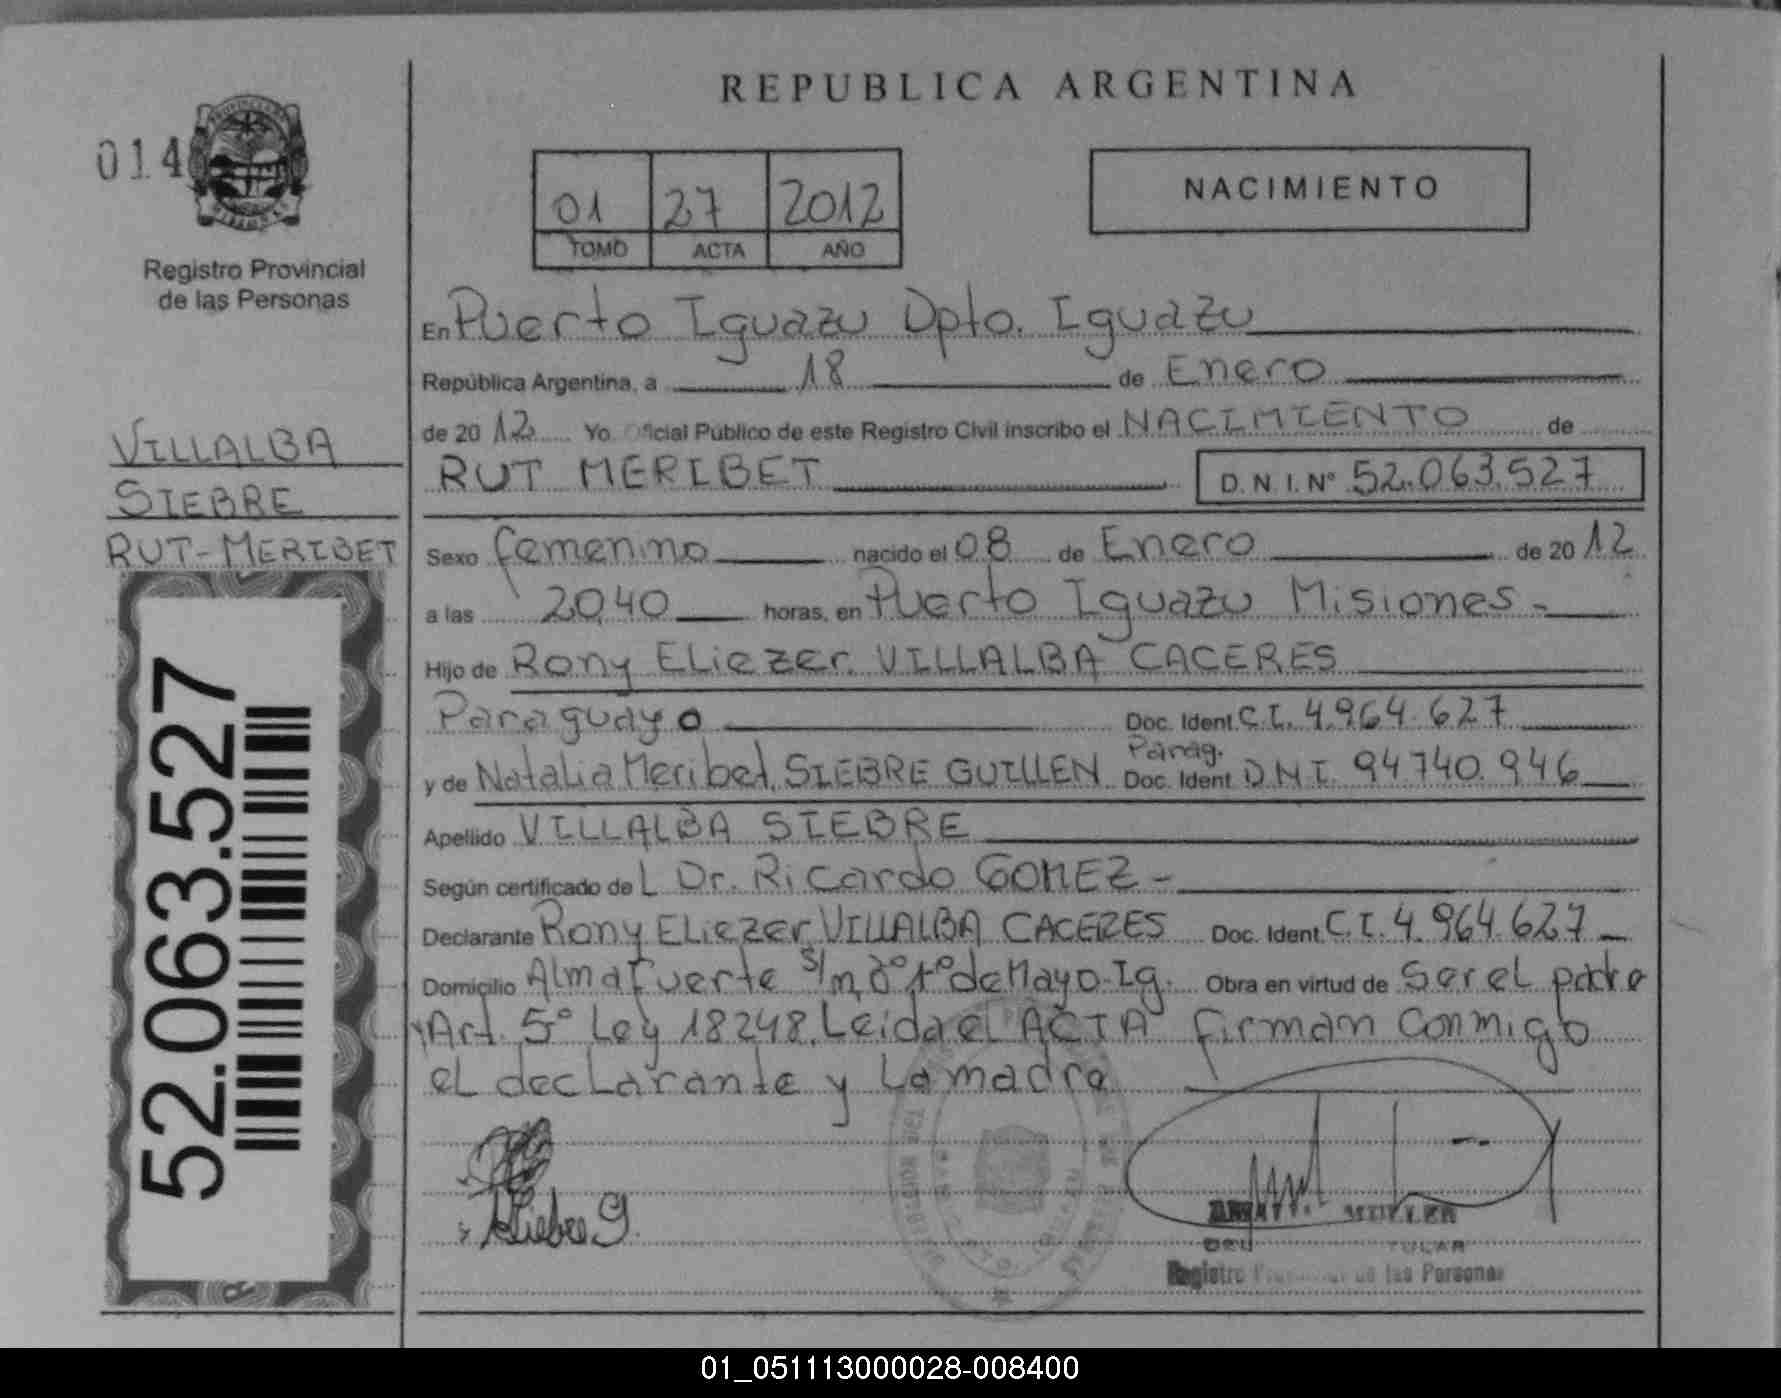 REPUBLICA ARGENTINA
014
Registro Provincial
de las Personas
01 27 2012
TOMO ACTA AÑO
NACIMIENTO
En Puerto Iguazu Dpto. Iguazu
República Argentina, a 18 de Enero
de 20 12 Yo Oficial Público de este Registro Civil inscribo el NACIMIENTO de
RUT MERIBET D.N.I. Nº 52.063.527
VILLALBA
SIEBRE
RUT-MERIBET
52.063.527
Sexo femenino nacido el 08 de Enero de 20 12
a las 20,40 horas, en Puerto Iguazu Misiones -
Hijo de Rony Eliezer VILLALBA CACERES
Paraguayo Doc. Ident. C.I. 4.964.627
Parag.
y de Natalia Meribet SIEBRE GUILLEN Doc. Ident. D.N.I. 94.740.946
Apellido VILLALBA SIEBRE
Según certificado de L Dr. Ricardo GOMEZ -
Declarante Rony Eliezer VILLALBA CACERES Doc. Ident. C.I. 4.964.627
Domicilio Almafuerte s/n, Bº 1º de Mayo-Ig. Obra en virtud de ser el padre
y Art. 5º Ley 18248. Leida el ACTA firman conmigo
el declarante y la madre
Siebre G
MULLER
Registro Provincial de las Personas
01_051113000028-008400